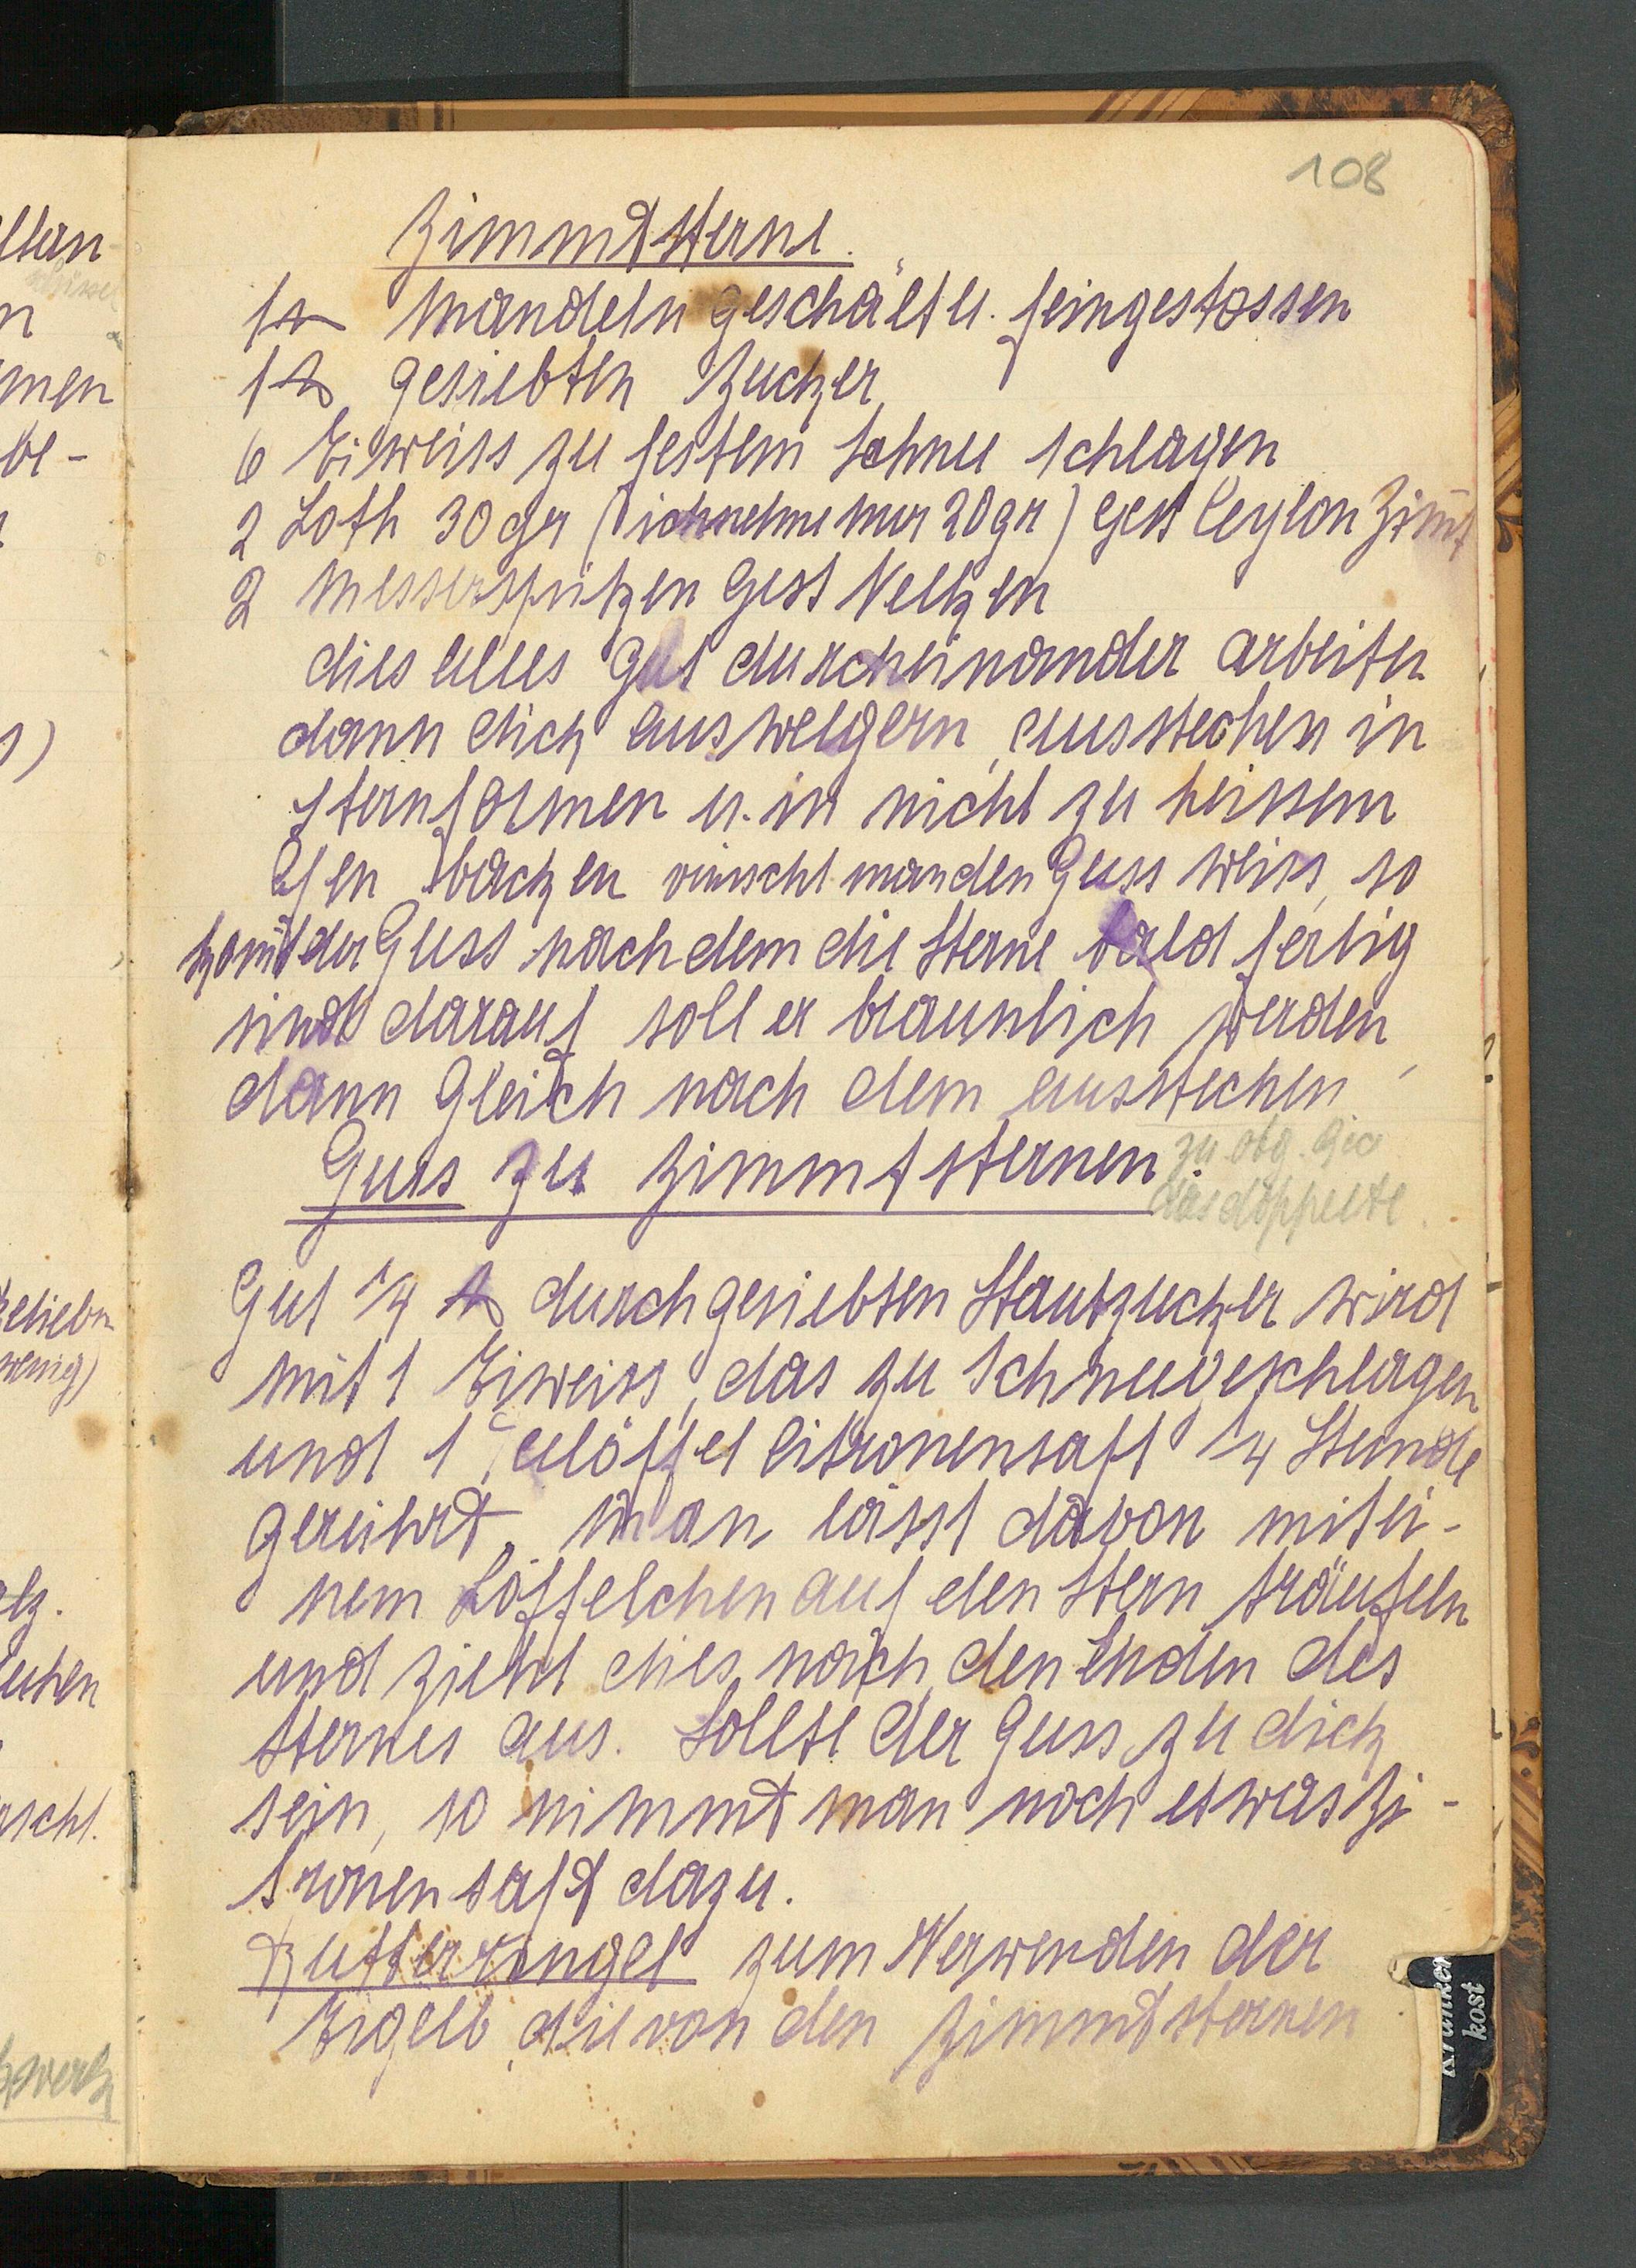 108
Zimmtsterne.
1 ℔ Mandeln geschält u. feingestossen
1 ℔ gesiebten Zucker
6 Eiweiss zu festem Schnee schlagen
2 Loth 30 gr (ich nehme nur 20 gr) gest Ceylon Zimt
2 Messerspitzen gest Nelken
dies alles gut durcheinander arbeiten
dann dick auswelgern, ausstechen in
Sternformen u. in nicht zu heissem
Ofen backen wünscht man den Guss weiss, so
komt der Guss nach dem die Sterne bald fertig
sind darauf soll er bräunlich werden,
dann gleich nach dem ausstechen
Guss zu Zimmtsternen.
zu obg.
das doppelte.
Gut 1/4 ℔ durchgesiebten Staubzucker wird
mit 1 Eiweiss, das zu Schnee geschlagen
und 1 Teelöffel Citronensaft 1/4 Stunde
gerührt. Man lässt davon mit ei-
nem Löffelchen auf den Stern träufeln
und zieht dies nach den Enden des
Sternes aus. Sollte der Guss zu dick
sein, so nimmt man noch etwas Zi-
tronensaft dazu.
Butterringel zum Verwenden der
Eigelb die von den Zimmtsternen
Kranken
kost
ellan
n
men
be-
s)
beliebn
wenig)
uchen
ischt.
kwerk